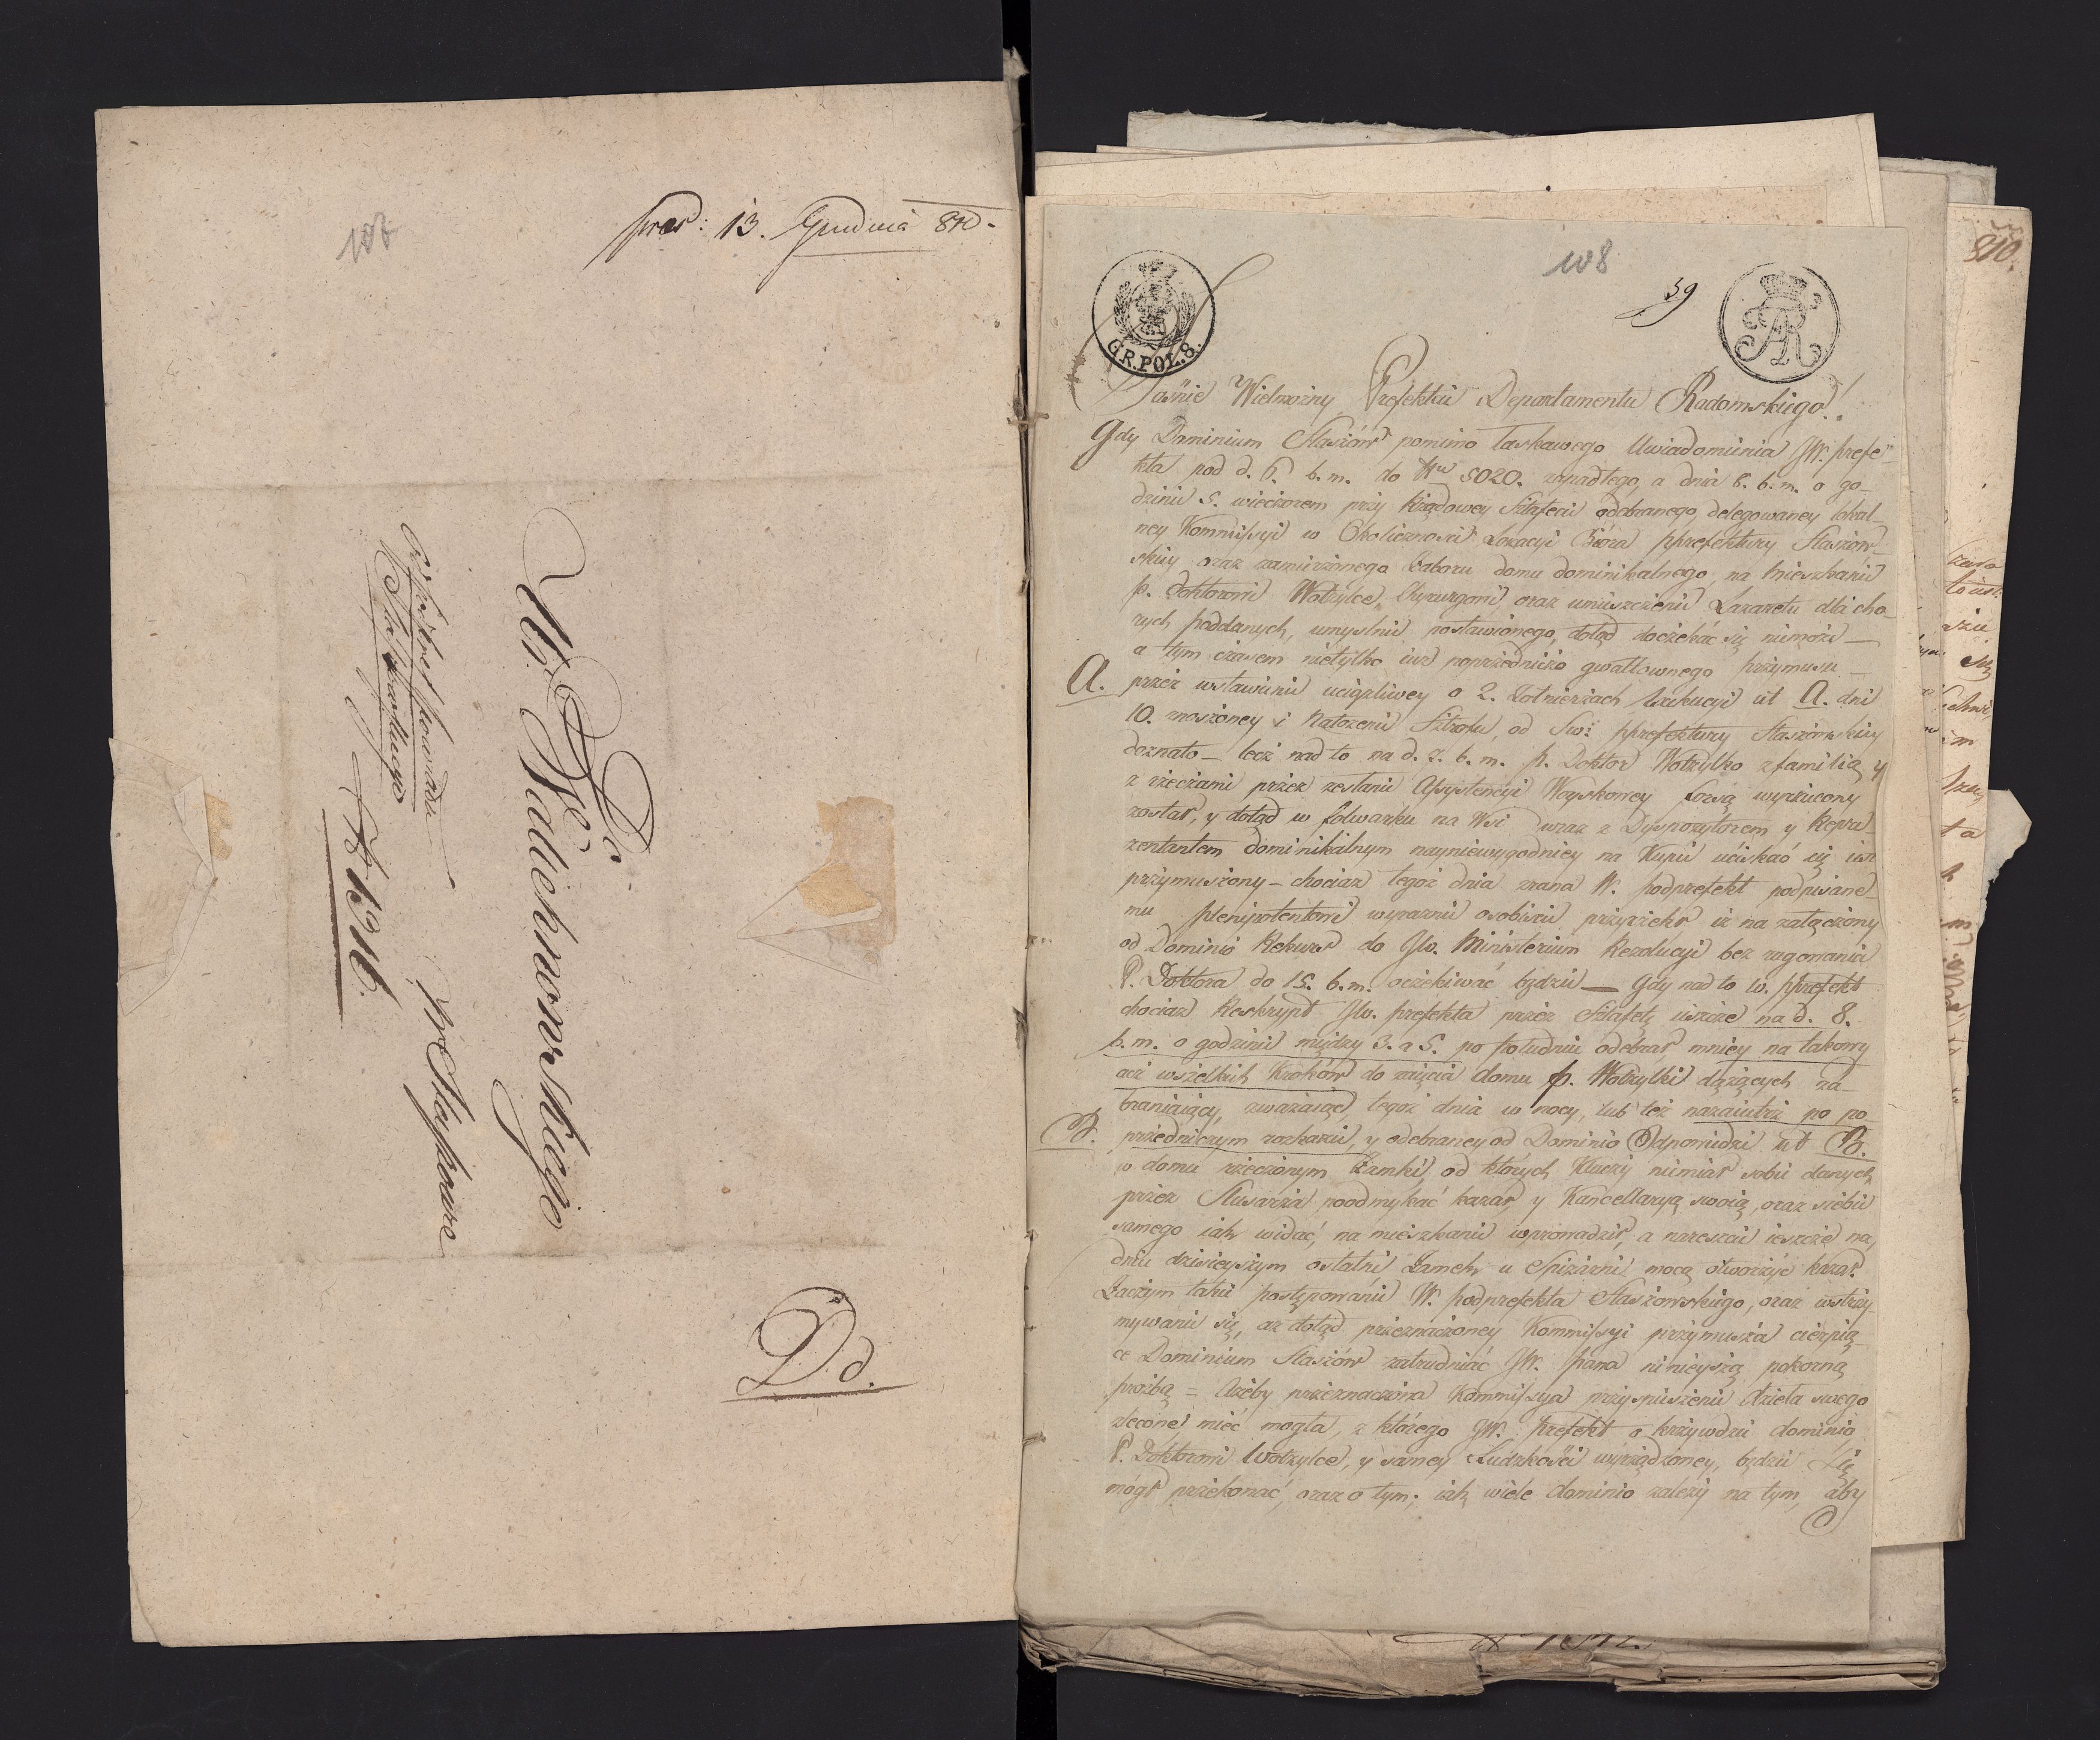 107
præs: 13. Grudnia 810.
Wu Badeńkowskiego
w Staszowie
Nr 1316.
D. d.
108
39
G.R.POL.8.
AR
810.
Jaśnie Wielmożny Prefekcie Departamentu Radomskiego!
Gdy Dominium Staszów pomimo łaskawego Uwiadomienia JW. prefe-
kta pod d. 6. b. m. do Nru 5020. zapadłego, a dnia 8. b. m. o go-
dzinie 5. wieczorem przy Rządowey Sztafecie odebranego, delegowaney lokal-
ney Kommissyi w Okoliczności Lokacyi Bióra pprefektury Staszow-
skiey oraz zamierzonego Zaboru domu dominikalnego, na mieszkanie
p. Doktorowi Wotrylce, Chyrurgowi, oraz umieszczenie Lazaretu dla cho-
rych poddanych, umyslnie postawionego, dotąd doczekać się niemoże —
a tym czasem nietylko iuż poprzedniczo gwałtownego przymusu —
A. przez wstawienie uciążliwey o 2. Żołnierzach Exekucyi ut A. dni
10. znoszoney i nałożenie Sztrofu, od Swż. pprefektury Staszowskiey
doznało — lecz nad to na d. 7. b. m. p. Doktor Wotrylko z familią y
z rzeczami przez zesłanie Assystencyi Woyskowey forsą wyrzucony
został, y dotąd w folwarku na Wsi wraz z Dyspozytorem y Repre-
zentantem dominikalnym nayniewygodniey na Kupie uciskać się iest
przymuszony — chociaż tegoż dnia zrana W. podprefekt podpisane-
mu plenipotentowi wyraznie osobiscie przyrzekł iż na załączony
od Dominio Rekurs do JW. Ministerium Rezolucyi bez rugowania
P. Doktora do 15. b. m. oczekiwać będzie — Gdy nad to W. pprefekt
chociaż Reskrypt JW. prefekta przez Sztafetę ieszcze na d. 8.
b. m. o godzinie między 3. a 5. po południu odebrał mniey na takowy
acz wszelkich Kroków do zaięcia domu p. Wotrylki dążących za-
braniaiący, zważaiąc, tegoż dnia w nocy, lub też nazaiutrz po po-
B. przedniczym rozkazie, y odebraney od Dominio Odpowiedzi ut B.
w domu rzeczonym Zamki, od których Kluczy niemiał sobie danych,
przez Slusarza poodmykać kazał, y Kancellaryą swoią, oraz siebie
samego iak widać, na mieszkanie wprowadził, a nareszcie ieszcze na
dniu dzisieyszym ostatni Zamek u Spiżarni mocą otworzyć kazał.
Zaczym takie postępowanie W. podprefekta Staszowskiego, oraz wstrzy-
mywanie się, aż dotąd przeznaczoney Kommissyi przymusza cierpią-
ce Dominium Staszów zatrudniać JW. Pana ninieyszą pokorną
prożbą = Ażeby przeznaczona Kommissya przyspieszenie dzieła swego
zlecone mieć mogła, z którego JW. Prefekt o krzywdzie dominio
P. Doktorowi Wotrylce, y samey Ludzkości wyrządzoney, będzie Się
mógł przekonać, oraz o tym, iak wiele dominio zależy na tym, aby